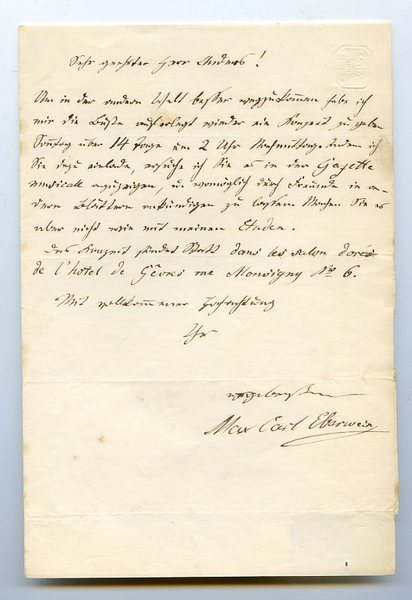 Sehr geehrter Herr Anders!
Um in der andern Welt besser wegzukommen habe ich
mir die Buße auferlegt wieder ein Konzert zu geben
Sontag über 14 Tage um 2 Uhr Nachmittags. Indem ich
Sie dazu einlade, ersuche ich Sie es in der Gazette
musicale anzuzeigen, u. womöglich durch Freunde in an-
dern Blättern verkündigen zu lassen. Machen Sie es
aber nicht wie mit meinen Etuden.
Das Konzert findet Statt dans les salon dorés
de l'hotel de Gêvres rue Monsigny No 6.
Mit vollkommener Hochachtung
Ihr
ergebenster
Max Carl Eberwein